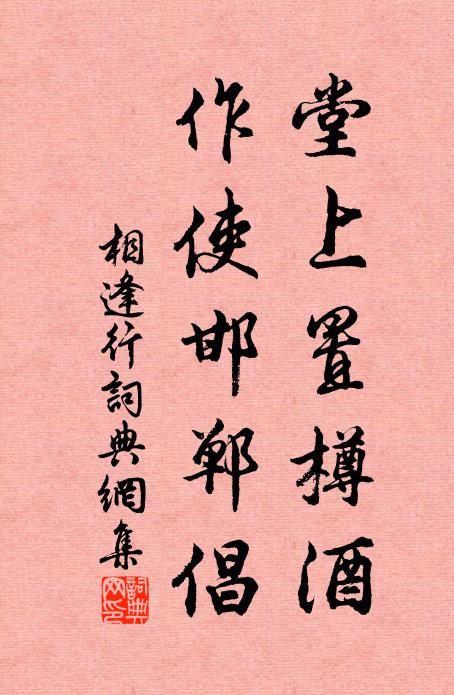 堂上置樽酒
作使邯鄲倡
相逢行詞典網集
詞典網印